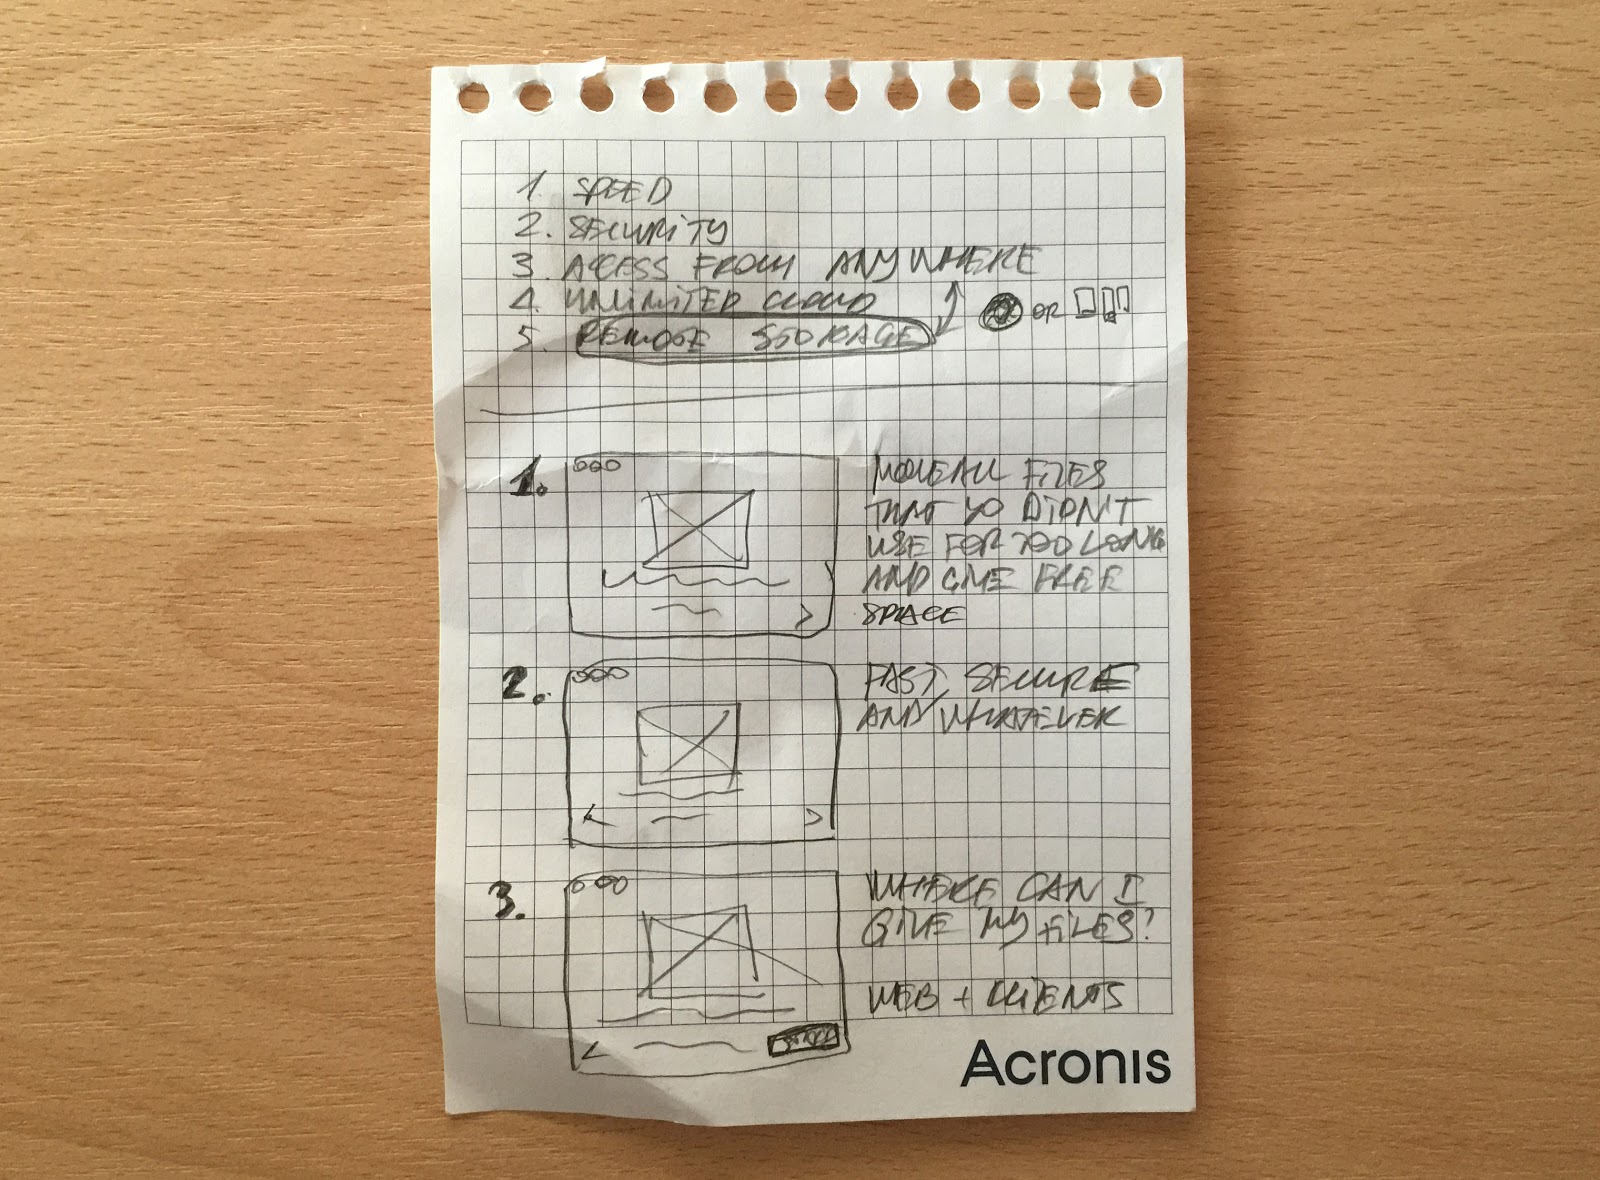 1. SPEED
2. SECURITY
3. ACCESS FROM ANYWHERE
4. UNLIMITED CLOUD
OR
5. REMOTE STORAGE
1.
MOVE ALL FILES
THAT YO DIDN'T
USE FOR TOO LONG
AND GIVE FREE
SPACE
2.
FAST, SECURE
AND WHATEVER
3.
WHERE CAN I
GIVE MY FILES?
WEB + CLIENTS
Acronis